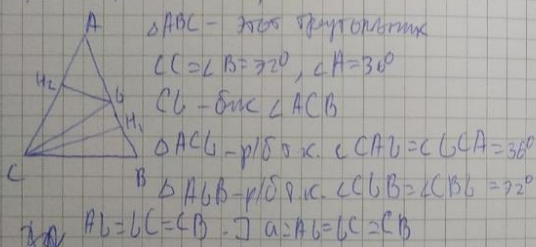 A
H₂
L
H₁
C
B
△ABC - этот треугольник
∠C=∠B=72°, ∠A=36°
CL - бис ∠ACB
△ACL - р/б т.к. ∠CAL=∠LCA=36°
△ALB - р/б т.к. ∠CLB=∠CBL=72°
AL=LC=CB. ] a=AL=LC=CB